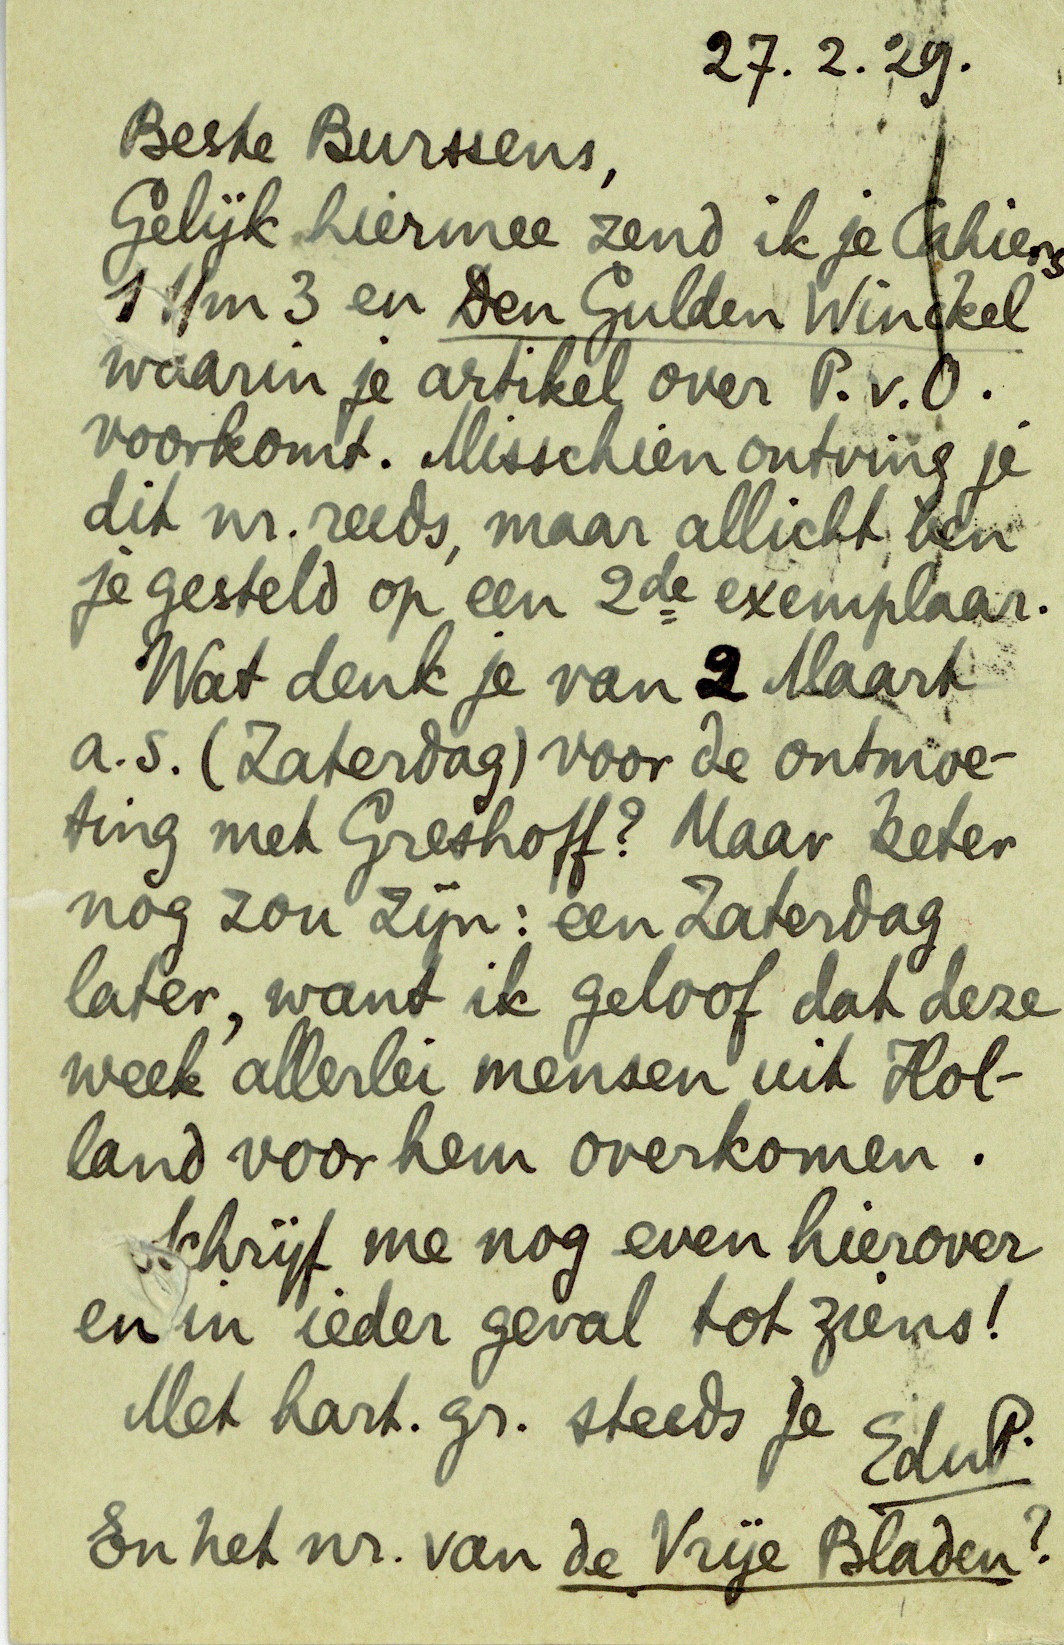 27. 2. 29.
Beste Burssens,
Gelijk hiermee zend ik je Cahiers
1 t/m 3 en Den Gulden Winckel
waarin je artikel over P. v. O.
voorkomt. Misschien ontving je
dit nr. reeds, maar allicht ben
je gesteld op een 2de exemplaar.
Wat denk je van 2 Maart
a.s. (Zaterdag) voor de ontmoe-
ting met Greshoff? Maar beter
nog zou zijn: een Zaterdag
later, want ik geloof dat deze
week allerlei mensen uit Hol-
land voor hem overkomen.
Schrijf me nog even hierover
en in ieder geval tot ziens!
Met hart. gr. steeds je
EduP.
En het nr. van de Vrije Bladen?